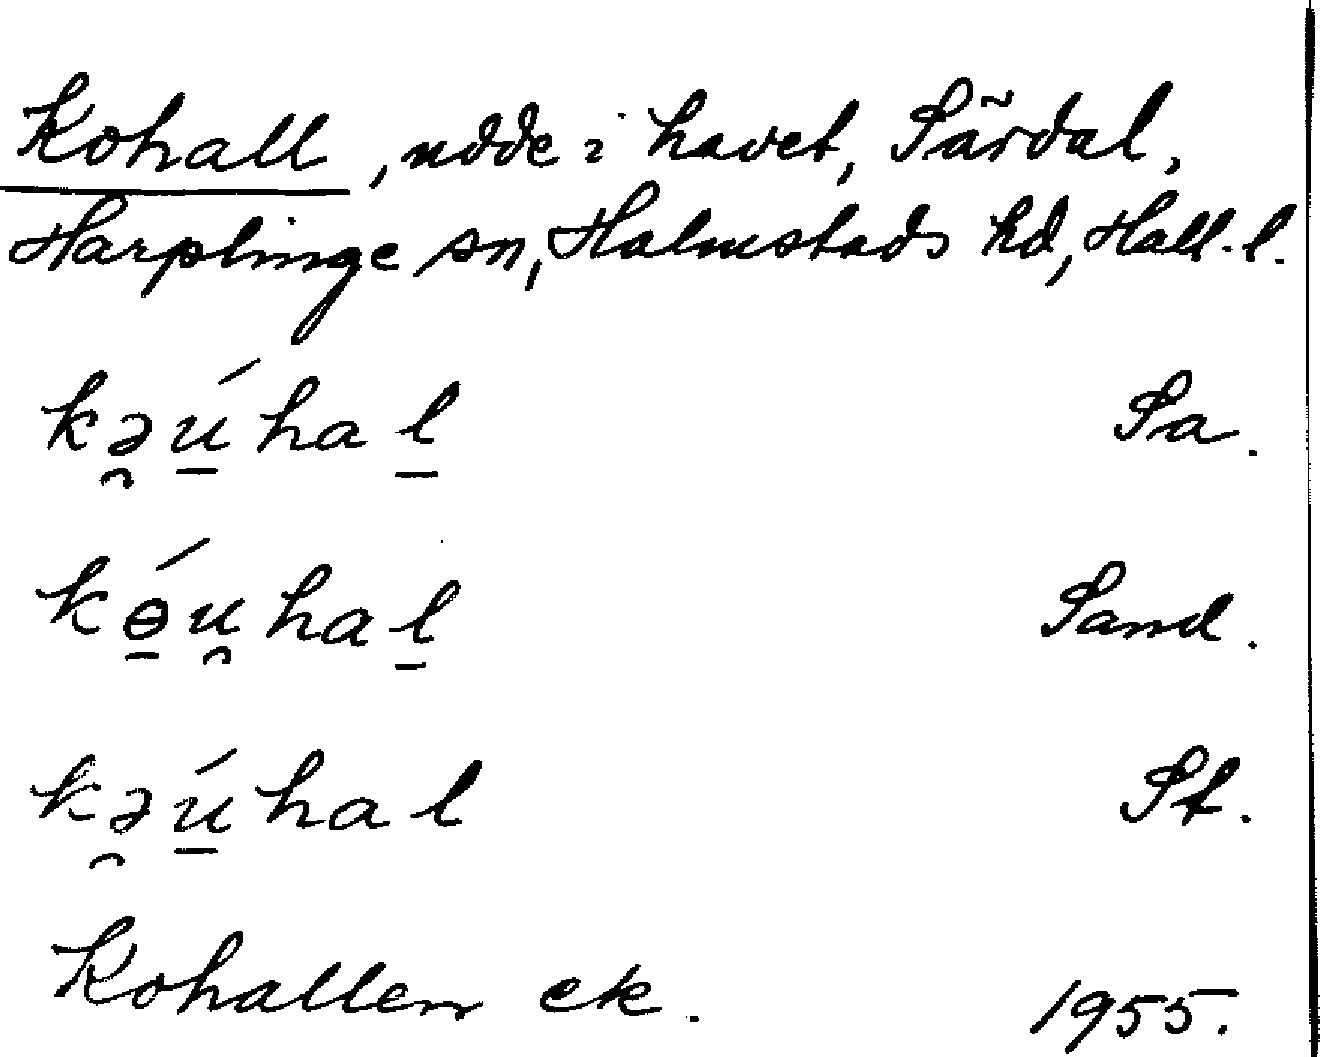 Kohall, udde i havet, Särdal,
Harplinge sn, Halmstads hd, Hall. l.
kə̯ú̱haḻ Sa.
kɵ̱́u̯haḻ Sand.
kə̯ú̱hal St.
Kohallen ek. 1955.